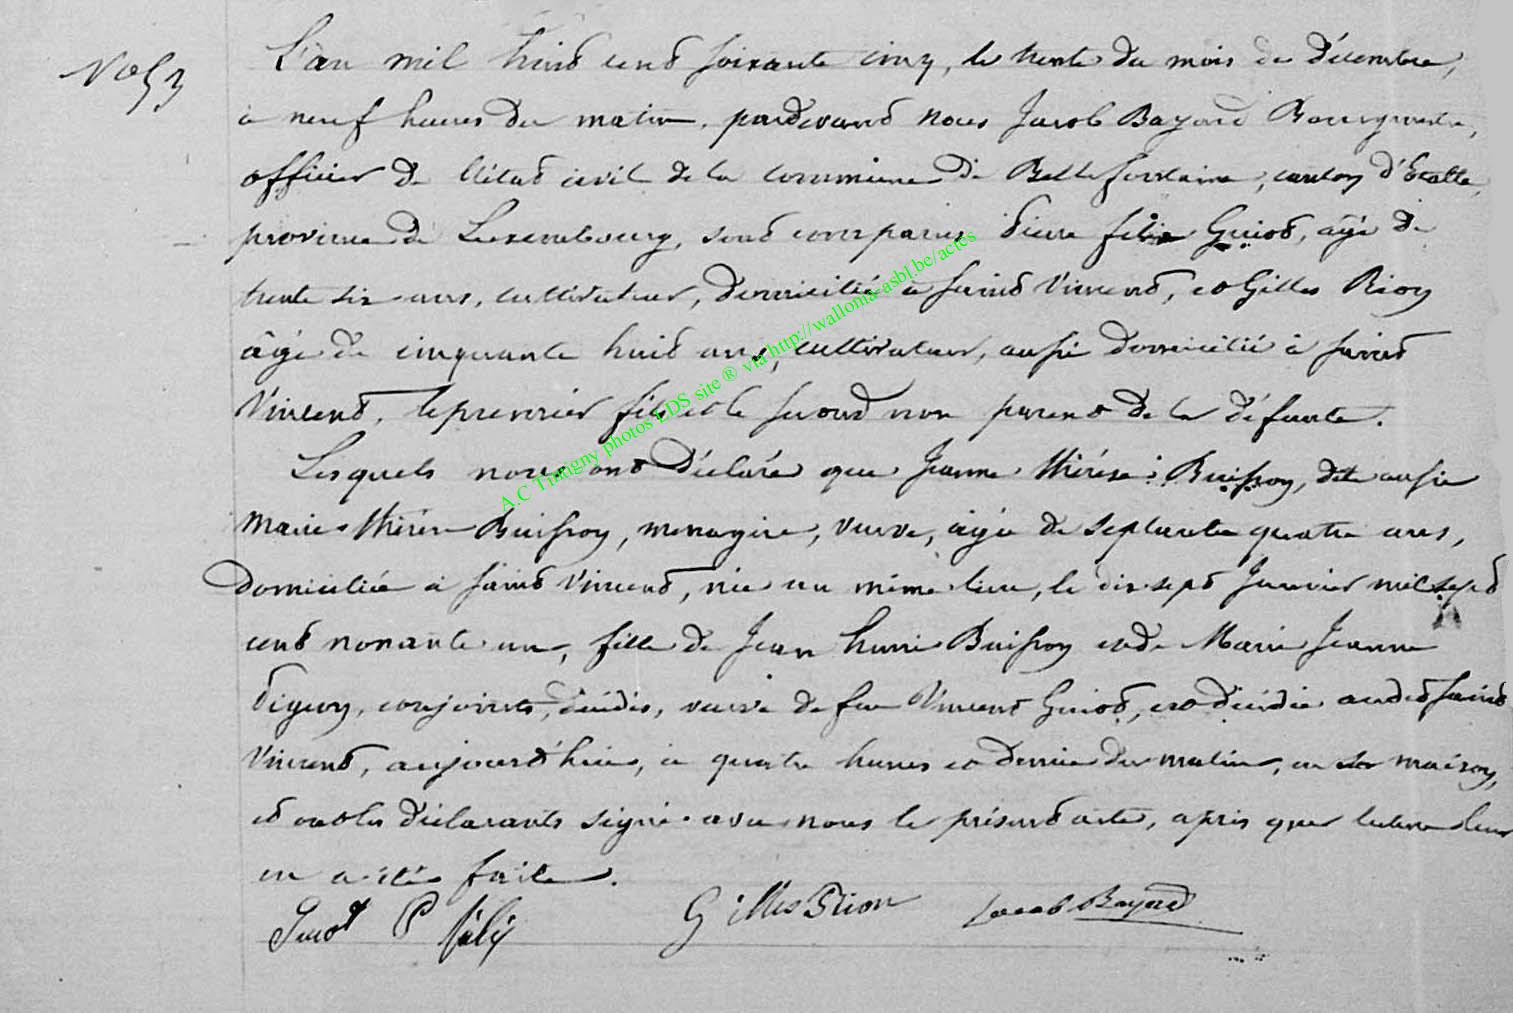 No 53
L'an mil huit cent soixante cinq, le trente du mois de décembre,
à neuf heures du matin, pardevant nous Jacob Bayard Bourgmestre,
officier de l'état civil de la commune de Bellefontaine, canton d'Etalle,
province de Luxembourg, sont comparus Pierre félix Guiot, âgé de
trente six ans, cultivateur, domicilié à saint Vincent, et Gilles Rion
âgé de cinquante huit ans, cultivateur, aussi domicilié à saint
Vincent, le premier fils et le second non parent de la défunte.
Lesquels nous ont déclaré que Jeanne thérèse Buisson, dite aussi
Marie thérèse Buisson, menagère, veuve, âgée de septante quatre ans,
domiciliée à saint Vincent, née au même lieu, le dix sept Janvier mil sept
cent nonante un, fille de Jean henri Buisson et de Marie Jeanne
conjoints, décédés, veuve de feu Vincent Guiot, est décédée audit saint
Vincent, aujourd'hui, à quatre heures et demie du matin, en sa maison,
et ont les déclarants signé avec nous le présent acte, après que lecture leur
en a été faite.
Guiot P félix Gilles Rion Jacob Bayard
A.C Tintigny photos LDS site ® via http://walloma-asbl.be/actes